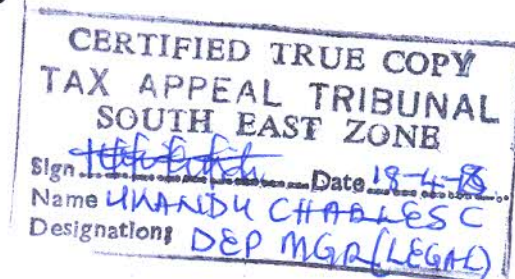 CERTIFIED TRUE COPY
TAX APPEAL TRIBUNAL
SOUTH EAST ZONE
Sign Date 18-4-18
Name UKANDU CHARLES C
Designation: DEP MGR (LEGAL)